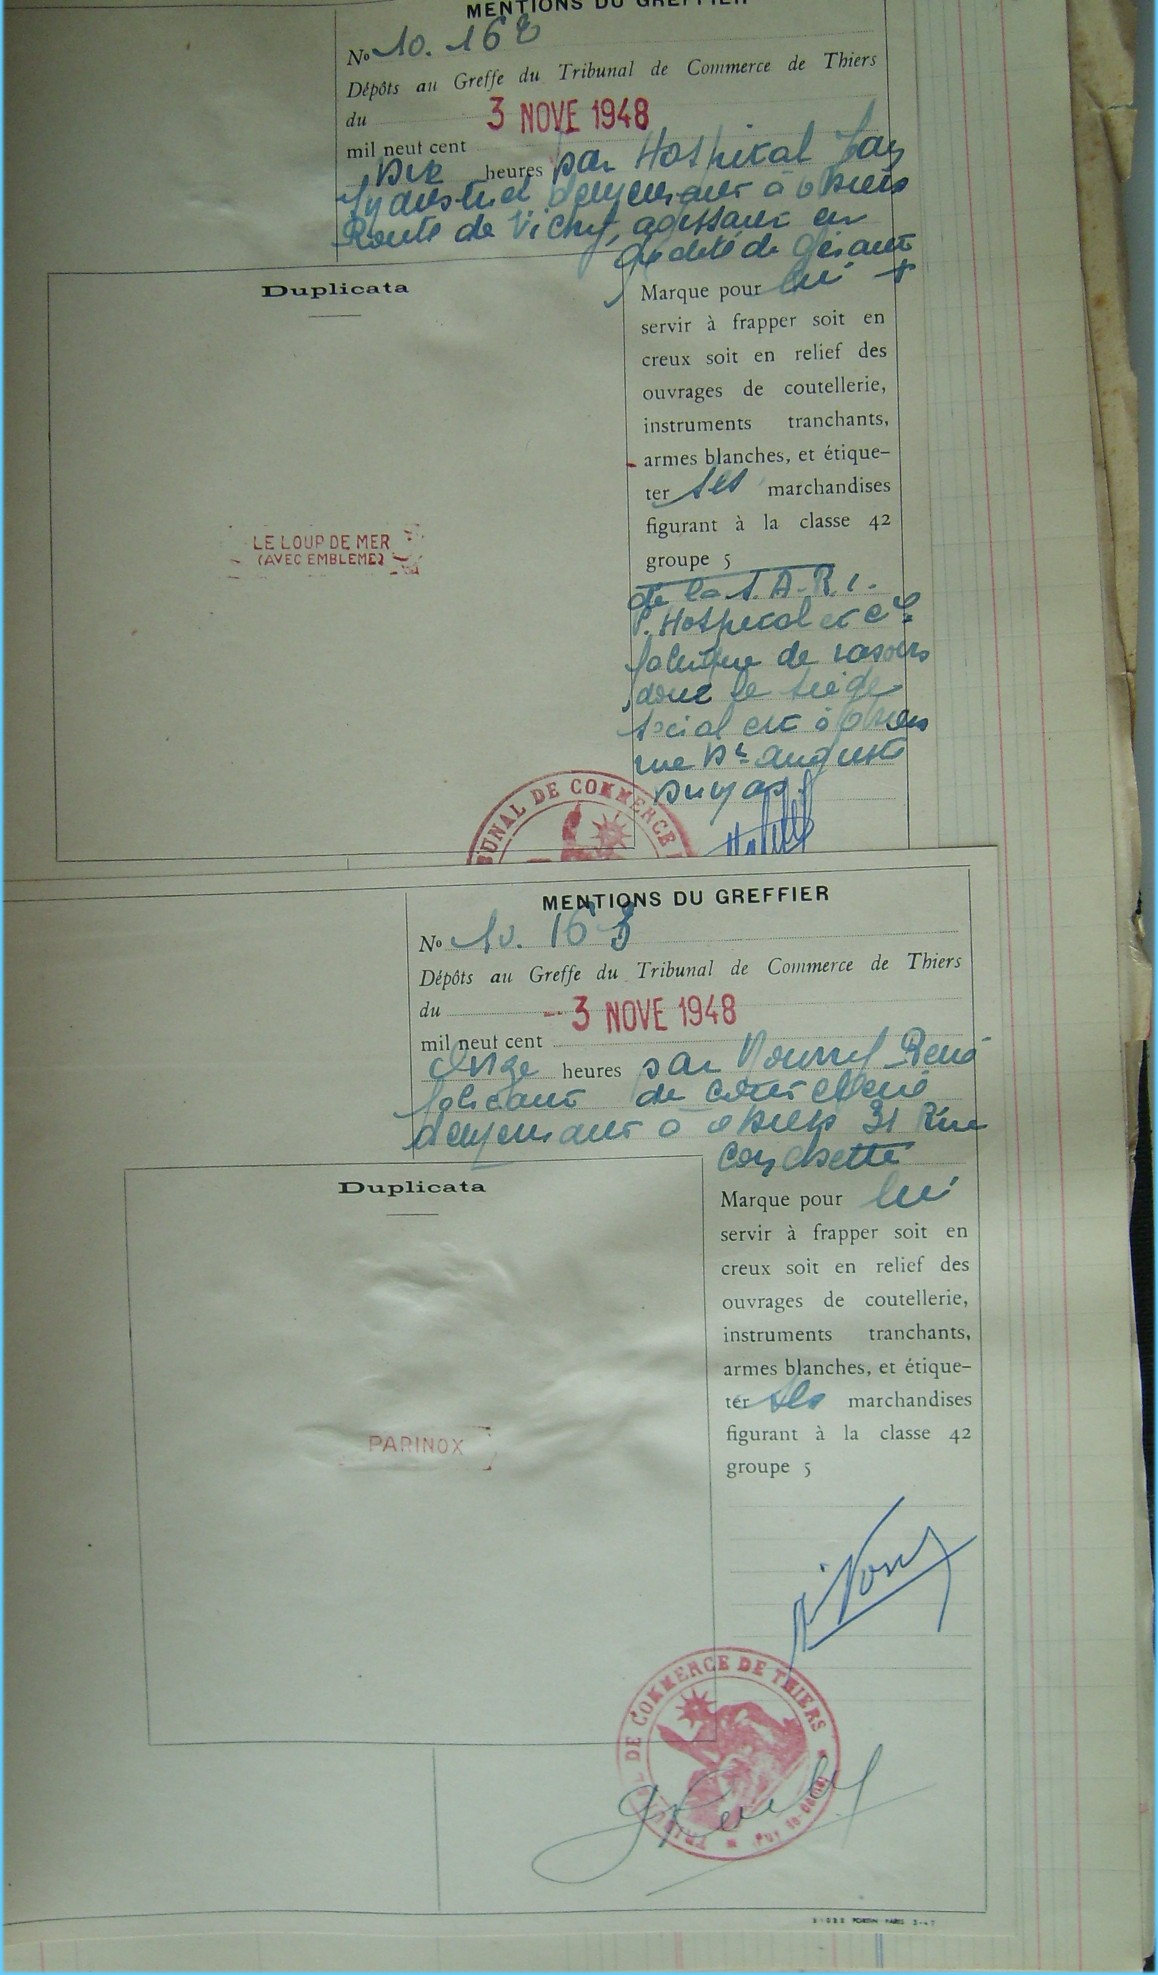 MENTIONS DU GREFFIER
No 10.162
Dépôts au Greffe du Tribunal de Commerce de Thiers
du 3 NOVE 1948
mil neuf cent
Dix heures par Hospital Jay
Industriel demeurant à Thiers
Route de Vichy, agissant en
qualité de gérant
Duplicata
Marque pour lui +
servir à frapper soit en
creux soit en relief des
ouvrages de coutellerie,
instruments tranchants,
armes blanches, et étique-
ter ses marchandises
figurant à la classe 42
groupe 5
LE LOUP DE MER
(AVEC EMBLEME)
de la S.A.R.L.
P. Hospital et Cie
fabrique de rasoirs
dont le siège
social est à Thiers
rue Dr Auguste
Dumas.
BUNAL DE COMMERCE
MENTIONS DU GREFFIER
No 10.163
Dépôts au Greffe du Tribunal de Commerce de Thiers
du -3 NOVE 1948
mil neuf cent
Onze heures par René
fabricant de coutellerie
demeurant à Thiers 31 Rue
Conchette
Duplicata
Marque pour lui
servir à frapper soit en
creux soit en relief des
ouvrages de coutellerie,
instruments tranchants,
armes blanches, et étique-
ter ses marchandises
figurant à la classe 42
groupe 5
PARINOX
TRIBUNAL DE COMMERCE DE THIERS
Puy-de-Dôme